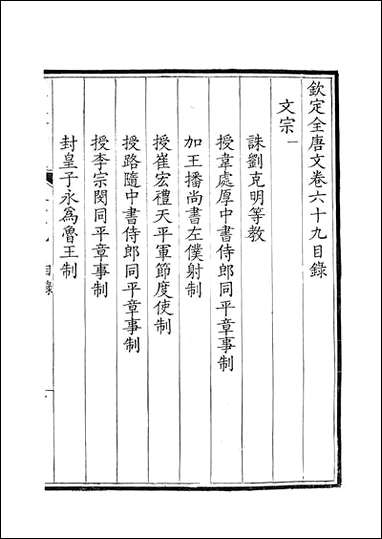 欽定全唐文卷六十九目錄
文宗一
誅劉克明等敎
授韋處厚中書侍郎同平章事制
加王播尚書左僕射制
授崔宏禮天平軍節度使制
授路隨中書侍郎同平章事制
授李宗閔同平章事制
封皇子永爲魯王制
目錄